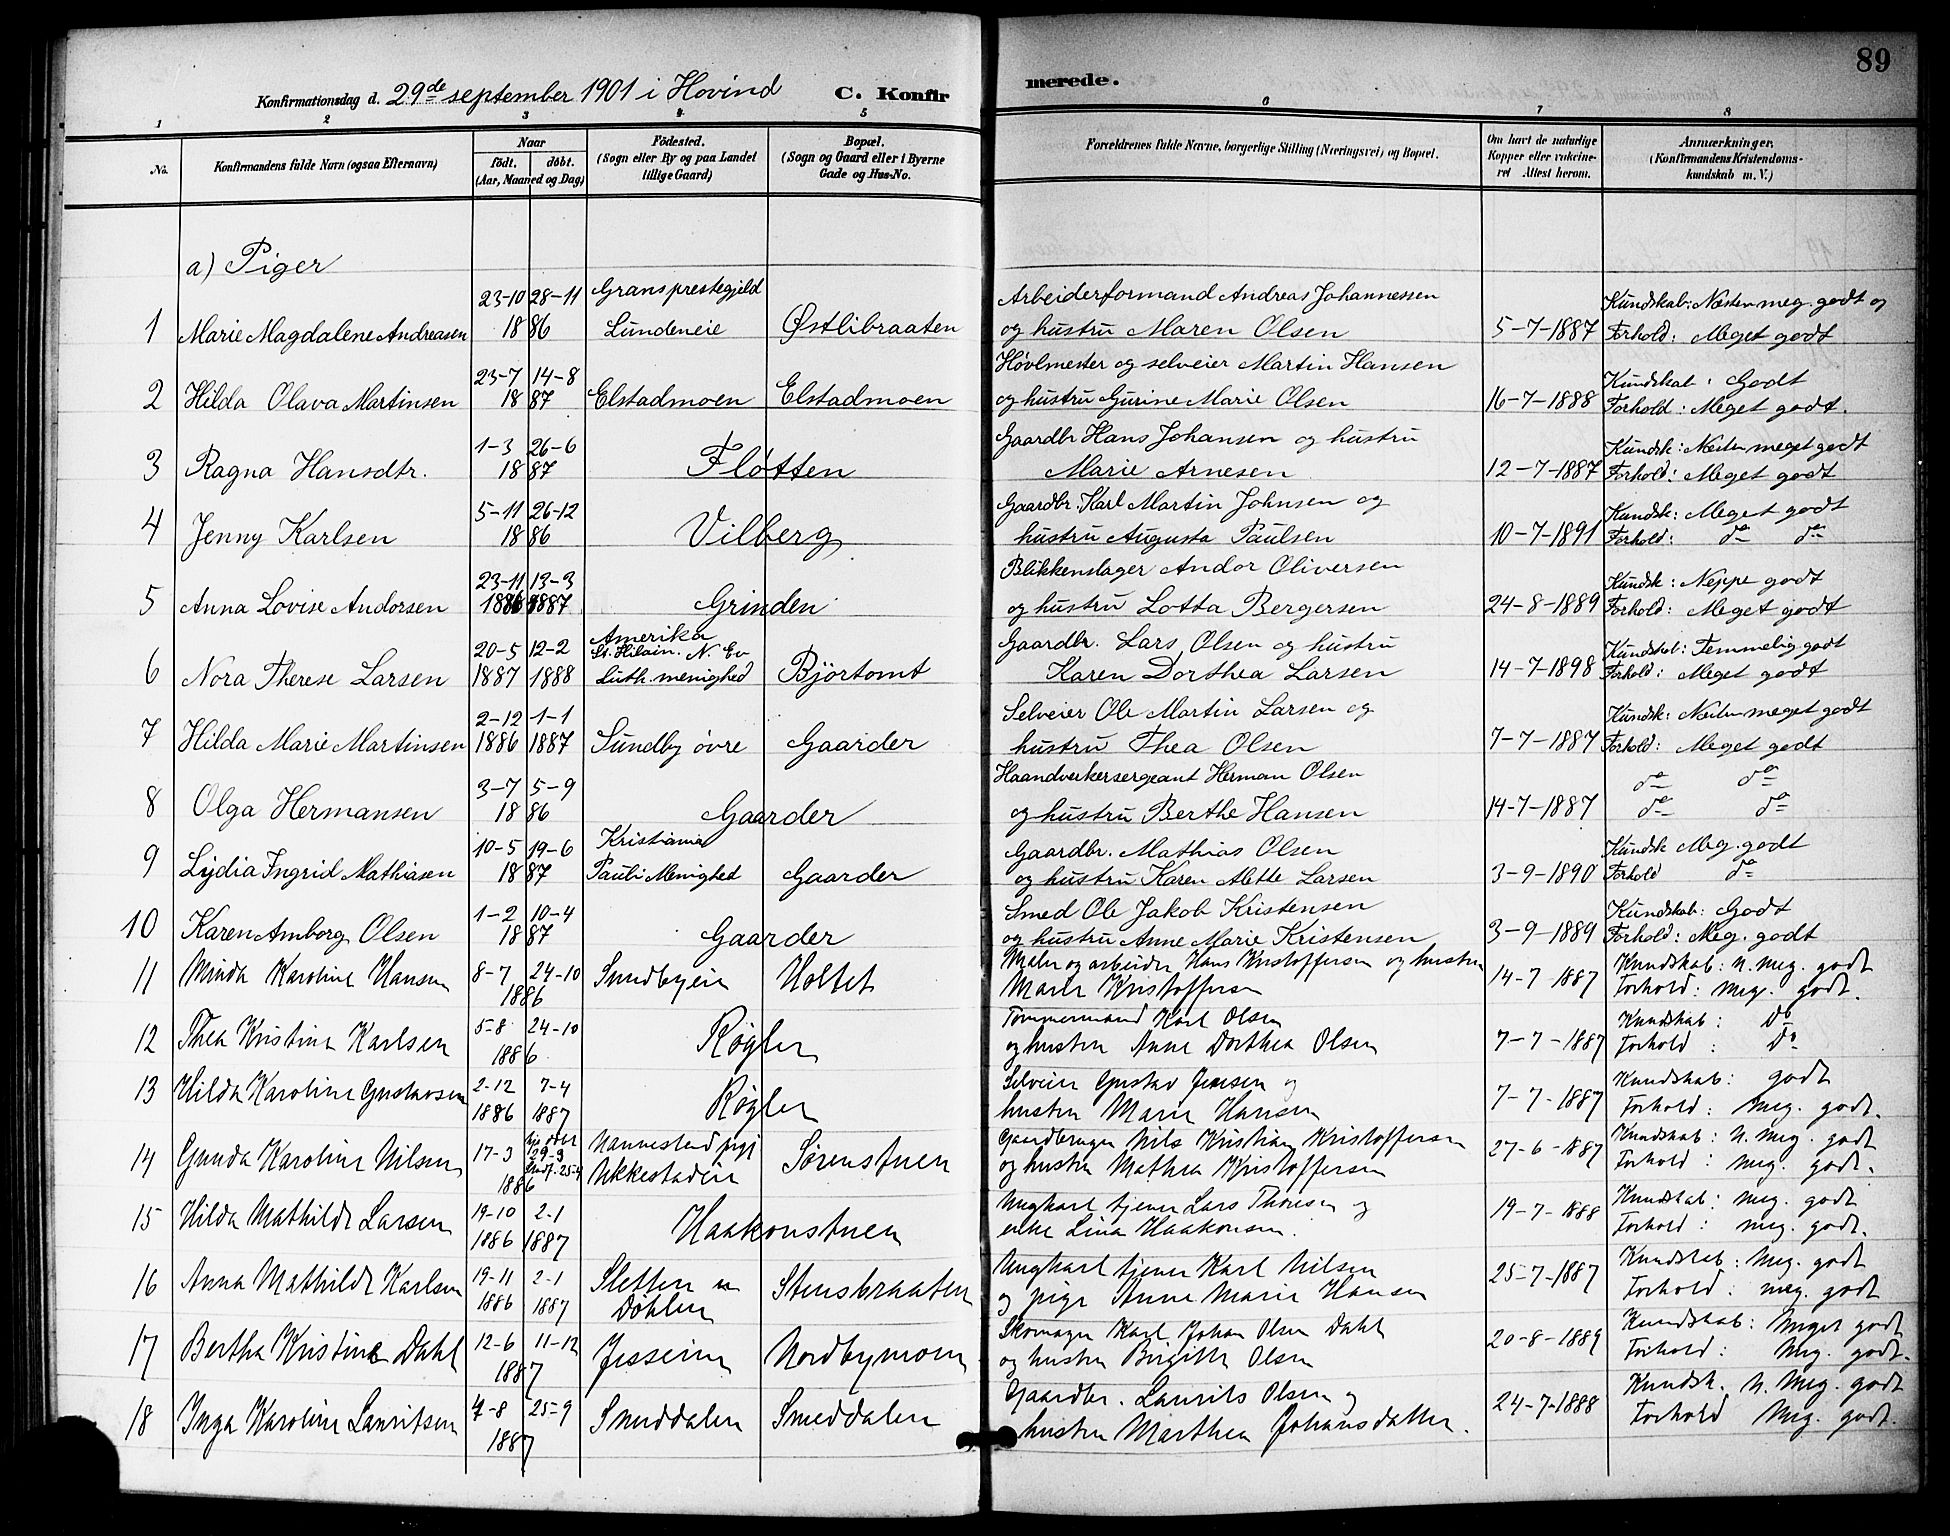 89
Konfirmationsdag d. 29de september 1901 i Hovind C. Konfirmerede.
1 2 3 4 5 6 7 8
No. Konfirmandens fulde Navn (ogsaa Efternavn) Naar født. døbt. (Aar, Maaned og Dag) Fødested. (Sogn eller By og paa Landet tillige Gaard) Bopæl. (Sogn og Gaard eller i Byerne Gade og Hus-No. Forældrenes fulde Navne, borgerlige Stilling (Næringsvei) og Bopæl. Om havt de naturlige Kopper eller vakcineret Attest herom. Anmærkninger. (Konfirmandens Kristendomskundskab m. V.)
a) Piger
23-10 28-11 Grans prestegjeld Arbeiderformand Andreas Johannessen Kundskab: Næsten meg. godt og
1 Marie Magdalene Andreasen 1886 Lundeneie Østlibraaten og hustru Maren Olsen 5-7-1887 Forhold: Meget godt
23-7 14-8 Høvlmester og selveier Martin Hansen Kundskab: Godt
2 Hilda Olava Martinsen 1887 Elstadmoen Elstadmoen og hustru Gurine Marie Olsen 16-7-1888 Forhold: Meget godt.
1-3 26-6 Gaardbr Hans Johansen og hustru Kundsk: Næsten meget godt
3 Ragna Hansdtr. 1887 Fløtten Marie Arnesen 12-7-1887 Forhold: Meget godt
5-11 26-12 Gaardbr. Karl Martin Johnsen og Kundsk: Meget godt
4 Jenny Karlsen 1886 Vilberg hustru Augusta Paulsen 10-7-1891 Forhold: do do
23-11 13-3 Blikkenslager Andor Oliversen Kundsk: Neppe godt
5 Anna Lovise Andorsen 1886 1887 Grinden og hustru Lotta Bergersen 24-8-1889 Forhold: Meget godt
20-5 12-2 Amerika St. Hilain. N. Ev Gaardbr. Lars Olsen og hustru Kundskab: Temmelig godt
6 Nora Therese Larsen 1887 1888 Luth. menighed Bjørtomt Karen Dorthea Larsen 14-7-1898 Forhold: Meget godt
2-12 1-1 Selveier Ole Martin Larsen og Kundsk: Næsten meget godt
7 Hilda Marie Martinsen 1886 1887 Sundby øvre Gaarder hustru Thea Olsen 7-7-1887 Forhold: Meget godt
3-7 5-9 Haandverkersergeant Herman Olsen do do
8 Olga Hermansen 1886 Gaarder og hustru Berthe Hansen 14-7-1887 do do
10-5 19-6 Kristiania Gaardbr. Mathias Olsen Kundsk Meg. godt
9 Lydia Ingrid Mathiasen 1887 Pauli Menighed Gaarder og hustru Karen Alette Larsen 3-9-1890 Forhold do
1-2 10-4 Smed Ole Jakob Kristensen Kundskab: Godt
10 Karen Amborg Olsen 1887 Gaarder og hustru Anne Marie Kristensen 3-9-1889 Forhold: Meg. godt
11 Minda Karoline Hansen 8-7 24-10 Sundbyeie Holtet Maler og arbeider Hans Kristoffersen og hustru 14-7-1887 Kundskab: N. meg. godt
1886 Marie Kristoffersen Forhold: meg. godt.
12 Thea Kristine Karlsen 5-8 24-10 Røgler Tømmermand Karl Olsen 7-7-1887 Kundskab: Do
1886 og hustru Anne Dorthea Olsen Forhold: Do
13 Hilda Karoline Gustavsen 2-12 7-4 Røgler Selveier Gustav Jensen og 7-7-1887 Kundskab: godt
1886 1887 hustru Marie Hansen Forhold: meg. godt.
14 Gunda Karoline Nilsen 17-3 29-3 25-4 Nannestad pgj Sørenstuen Gaardbruger Nils Kristian Kristoffersen 27-6-1887 Kundskab: N. meg. godt
1886 Ukkestadeie og hustru Mathea Kristoffersen Forhold: meg. godt.
15 Hilda Mathilde Larsen 19-10 2-1 Haakonstuen Ungkarl tjener Lars Thoresen og 19-7-1888 Kundskab: meg. godt
1886 1887 enke Lina Haakonsen. Forhold: meg. godt.
16 Anna Mathilde Karlsen 19-11 2-1 Sletten u Stensbraaten Ungkarl tjener Karl Nilsen 25-7-1887 Kundskab: Meg. godt
1886 1887 Døhlen og pige Anne Marie Hansen Forhold: meg. godt
17 Bertha Kristine Dahl 12-6 11-12 Jesseim Nordbymoen Skomager Karl Johan Olsen Dahl 20-8-1889 Kundskab: Meget godt
1887 og hustru Birgitte Olsen Forhold: Meg. godt.
18 Inga Karoline Lauritsen 4-8 25-9 Smeddalen Smeddalen Gaardbr. Laurits Olsen og 24-7-1888 Kundsk. N. Meg. godt
1887 hustru Marthea Johansdatter. Forhold Meg. godt.